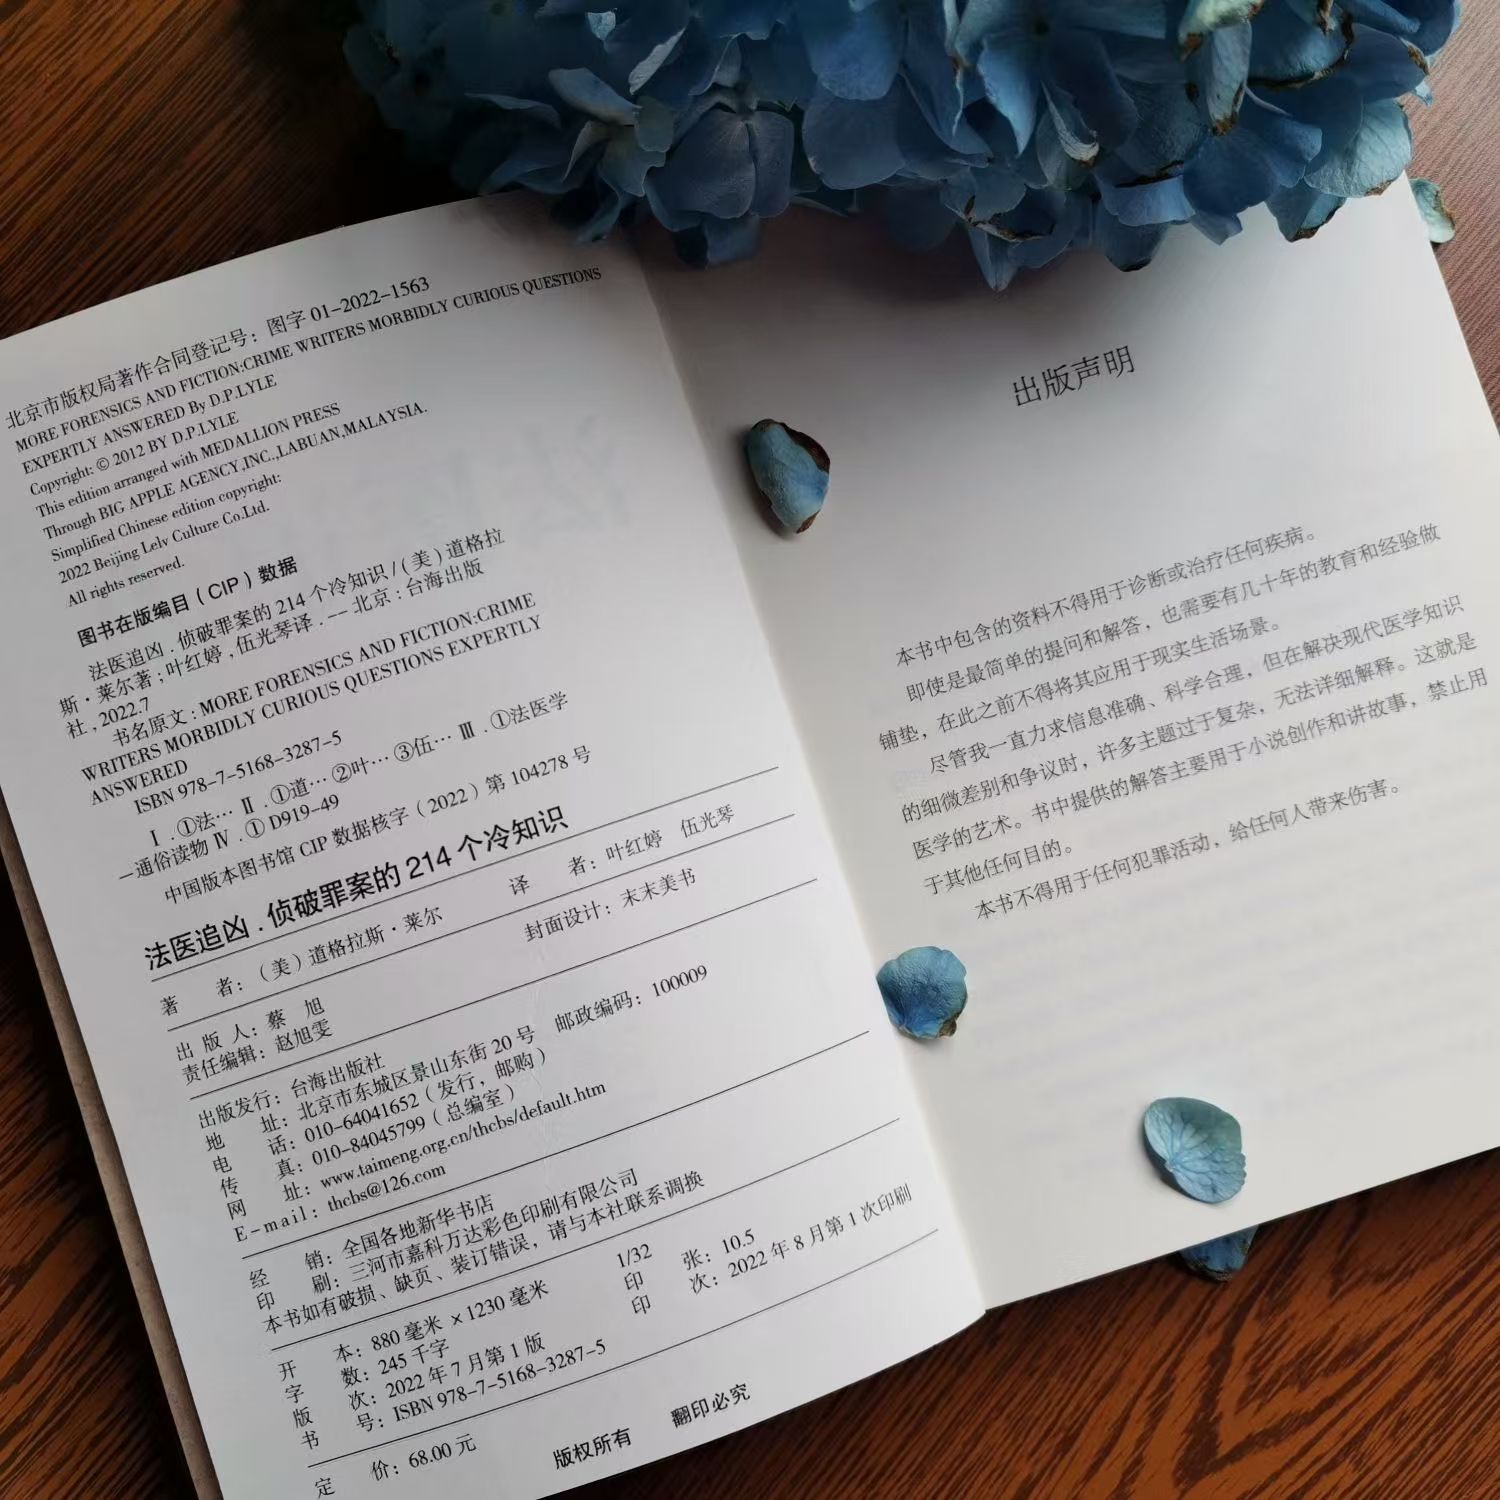 北京市版权局著作合同登记号：图字 01-2022-1563
MORE FORENSICS AND FICTION:CRIME WRITERS MORBIDLY CURIOUS QUESTIONS
EXPERTLY ANSWERED By D.P.LYLE
Copyright: © 2012 BY D.P.LYLE
This edition arranged with MEDALLION PRESS
Through BIG APPLE AGENCY,INC.,LABUAN,MALAYSIA.
Simplified Chinese edition copyright:
2022 Beijing Lelv Culture Co.Ltd.
All rights reserved.
图书在版编目（CIP）数据
法医追凶．侦破罪案的 214 个冷知识 /（美）道格拉
斯·莱尔著 ; 叶红婷 , 伍光琴译 . -- 北京 : 台海出版
社 , 2022.7
书名原文 : MORE FORENSICS AND FICTION:CRIME
WRITERS MORBIDLY CURIOUS QUESTIONS EXPERTLY
ANSWERED
ISBN 978-7-5168-3287-5
Ⅰ . ①法… Ⅱ . ①道… ②叶… ③伍… Ⅲ . ①法医学
—通俗读物 Ⅳ . ① D919-49
中国版本图书馆 CIP 数据核字（2022）第 104278 号
法医追凶．侦破罪案的 214 个冷知识
著 者：（美）道格拉斯·莱尔 译 者：叶红婷 伍光琴
出 版 人：蔡 旭 封面设计：末末美书
责任编辑：赵旭雯
出版发行：台海出版社
地 址：北京市东城区景山东街 20 号 邮政编码：100009
电 话：010-64041652（发行，邮购）
传 真：010-84045799（总编室）
网 址：www.taimeng.org.cn/thcbs/default.htm
E-mail：thcbs@126.com
经 销：全国各地新华书店
印 刷：三河市嘉科万达彩色印刷有限公司
本书如有破损、缺页、装订错误，请与本社联系调换
开 本：880 毫米 ×1230 毫米 1/32
字 数：245 千字 印 张：10.5
版 次：2022 年 7 月第 1 版 印 次：2022 年 8 月第 1 次印刷
书 号：ISBN 978-7-5168-3287-5
定 价：68.00 元
版权所有 翻印必究
出版声明
本书中包含的资料不得用于诊断或治疗任何疾病。
即使是最简单的提问和解答，也需要有几十年的教育和经验做
铺垫，在此之前不得将其应用于现实生活场景。
尽管我一直力求信息准确、科学合理，但在解决现代医学知识
的细微差别和争议时，许多主题过于复杂，无法详细解释。这就是
医学的艺术。书中提供的解答主要用于小说创作和讲故事，禁止用
于其他任何目的。
本书不得用于任何犯罪活动，给任何人带来伤害。